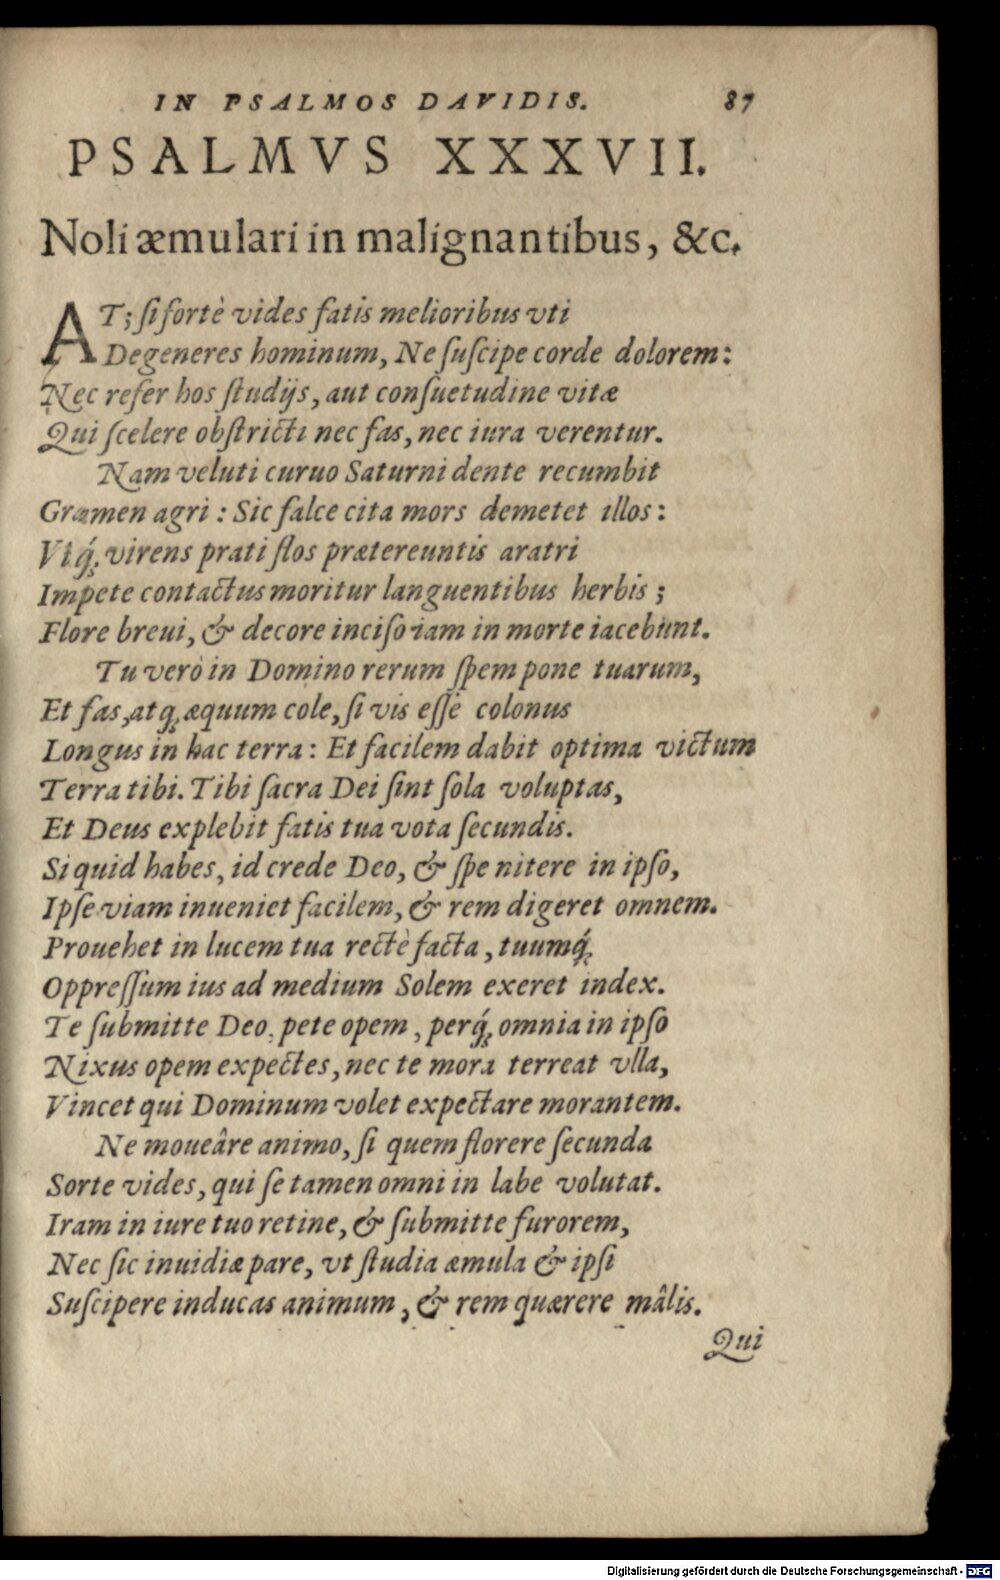 IN PSALMOS DAVIDIS. 87
PSALMVS XXXVII.
Noli æmulari in malignantibus, &c.
AT; ſi fortè vides fatis melioribus vti
Degeneres hominum, Ne ſuſcipe corde dolorem:
Nec refer hos ſtudijs, aut conſuetudine vitæ
Qui ſcelere obſtricti nec fas, nec iura verentur.
Nam veluti curuo Saturni dente recumbit
Gramen agri: Sic falce cita mors demetet illos:
Vtq́; virens prati flos prætereuntis aratri
Impete contactus moritur languentibus herbis;
Flore breui, & decore inciſo iam in morte iacebunt.
Tu verò in Domino rerum ſpem pone tuarum,
Et fas, atq; æquum cole, ſi vis eſſe colonus
Longus in hac terra: Et facilem dabit optima victum
Terra tibi. Tibi ſacra Dei ſint ſola voluptas,
Et Deus explebit fatis tua vota ſecundis.
Si quid habes, id crede Deo, & ſpe nitere in ipſo,
Ipſe viam inueniet facilem, & rem digeret omnem.
Prouehet in lucem tua rectè facta, tuumq́;
Oppreſſum ius ad medium Solem exeret index.
Te ſubmitte Deo, pete opem, perq́; omnia in ipſo
Nixus opem expectes, nec te mora terreat vlla,
Vincet qui Dominum volet expectare morantem.
Ne moueâre animo, ſi quem florere ſecunda
Sorte vides, qui ſe tamen omni in labe volutat.
Iram in iure tuo retine, & ſubmitte furorem,
Nec ſic inuidiæ pare, vt ſtudia æmula & ipſi
Suſcipere inducas animum, & rem quærere mâlis.
Qui
Digitalisierung gefördert durch die Deutsche Forschungsgemeinschaft - DFG